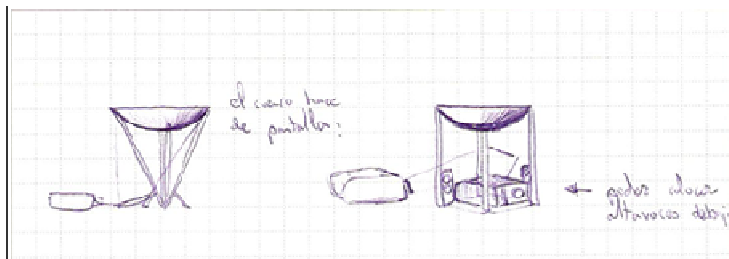 el cuenco hace
de pantalla?
← poder colocar
altavoces debajo